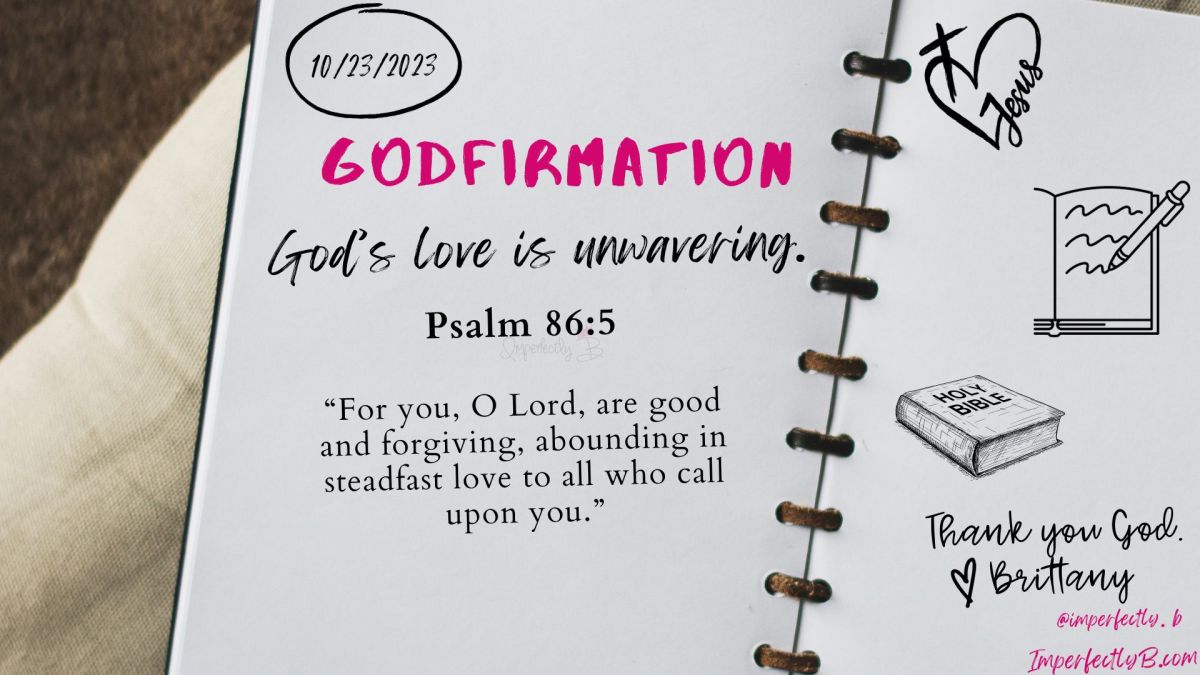 10/23/2023
GODFIRMATION
God's love is unwavering.
Psalm 86:5
Imperfectly B
“For you, O Lord, are good
and forgiving, abounding in
steadfast love to all who call
upon you.”
Jesus
HOLY
BIBLE
Thank you God.
Brittany
@imperfectly.b
ImperfectlyB.com